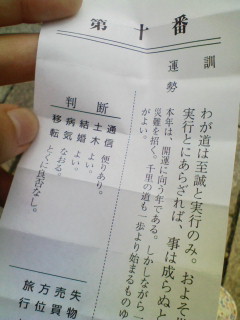 第十番
訓
わが道は至誠と実行のみ。およそ
実行とにあらざれば、事は成らぬと
運勢
本年は、開運に向う年である。しかしながら一
災難を招く。千里の道も一歩より始まるものゆ
がよい。
判断
通信 便りあり。
土木 よい。
結婚 よい。
病気 なおる。
移転 とくに良否なし。
失物
売買
方位
旅行